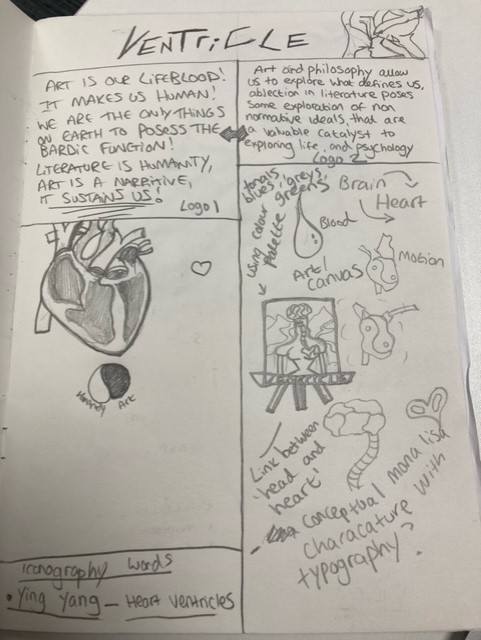 VENTRICLE
ART IS OUR LIFEBLOOD!
IT MAKES US HUMAN!
WE ARE THE ONLY THINGS
ON EARTH TO POSESS THE
BARDIC FUNCTION!
LITERATURE IS HUMANITY,
ART IS A NARRITIVE,
IT SUSTAINS US!
Logo 1
Art and philosophy allow
us to explore what defines us,
ablection in literature poses
some exploration of non
normative ideals, that are
a valuable catalyst to
exploring life, and psychology
Logo 2
tonals
blues, greys
greens
using colour
palette
Brain
Heart
Blood
Art/
canvas
Motion
Art
Link between
'head and
heart'
conceptual mona lisa
characature with
typography?
iconography words
• Ying Yang - Heart Ventricles